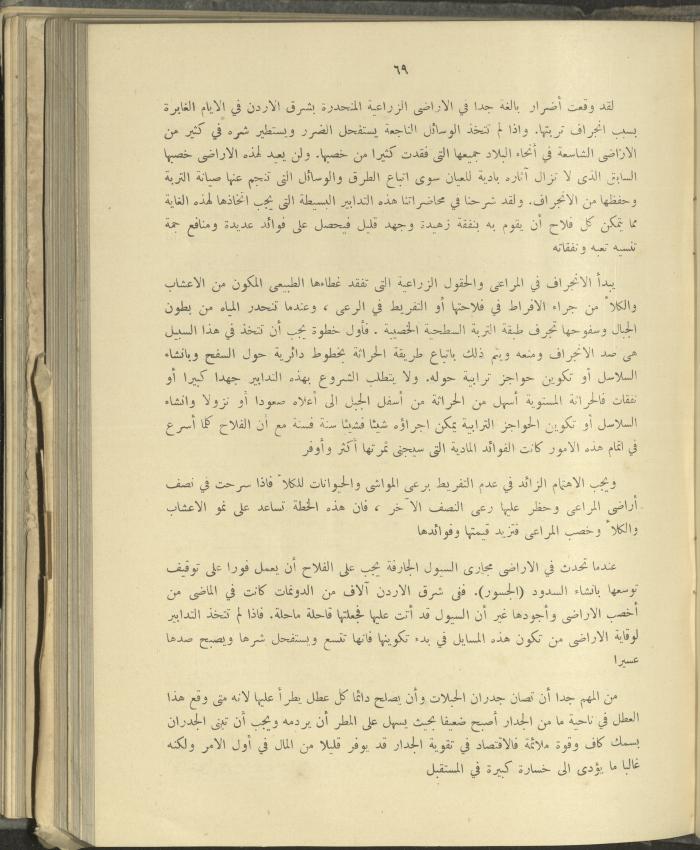 ٦٩
لقد وقعت أضرار بالغة جدا في الاراضى الزراعية المنحدرة بشرق الاردن في الايام الغابرة
بسبب انجراف تربتها. واذا لم تتخذ الوسائل الناجعة يستفحل الضرر ويستطير شره في كثير من
الاراضى الشاسعة في أنحاء البلاد جميعها التى فقدت كثيرا من خصبها. ولن يعيد لهذه الاراضى خصبها
السابق الذى لا تزال آثاره بادية للعيان سوى اتباع الطرق والوسائل التى تنجم عنها صيانة التربة
وحفظها من الانجراف. ولقد شرحنا في محاضراتنا هذه التدابير البسيطة التى يجب اتخاذها لهذه الغاية
مما يتمكن كل فلاح أن يقوم به بنفقة زهيدة وجهد قليل فيحصل على فوائد عديدة ومنافع جمة
تنسيه تعبه ونفقاته
يبدأ الانجراف في المراعى والحقول الزراعية التى تفقد غطاءها الطبيعى المكون من الاعشاب
والكلأ من جراء الافراط في فلاحتها أو التفريط في الرعى ، وعندما تنحدر المياه من بطون
الجبال وسفوحها تجرف طبقة التربة السطحية الخصيبة . فأول خطوة يجب أن تتخذ في هذا السبيل
هى صد الانجراف ومنعه ويتم ذلك باتباع طريقة الحراثة بخطوط دائرية حول السفح وبانشاء
السلاسل أو تكوين حواجز ترابية حوله. ولا يتطلب الشروع بهذه التدابير جهدا كبيرا أو
نفقات فالحراثة المستوية أسهل من الحراثة من أسفل الجبل الى أعلاه صعودا أو نزولا وانشاء
السلاسل أو تكوين الحواجز الترابية يمكن اجراؤه شيئا فشيئا سنة فسنة مع أن الفلاح كلما أسرع
في اتمام هذه الامور كانت الفوائد المادية التى سيجنى ثمرتها أكثر وأوفر
ويجب الاهتمام الزائد في عدم التفريط برعى المواشى والحيوانات للكلأ فاذا سرحت في نصف
أراضى المراعى وحظر عليها رعى النصف الآخر ، فان هذه الخطة تساعد على نمو الاعشاب
والكلأ وخصب المراعى فتزيد قيمتها وفوائدها
عندما تحدث في الاراضى مجارى السيول الجارفة يجب على الفلاح أن يعمل فورا على توقيف
توسعها بانشاء السدود (الجسور). ففى شرق الاردن آلاف من الدونمات كانت في الماضى من
أخصب الاراضى وأجودها غير أن السيول قد أتت عليها فجعلتها قاحلة ماحلة. فاذا لم تتخذ التدابير
لوقاية الاراضى من تكون هذه المسايل في بدء تكوينها فانها تتسع ويستفحل شرها ويصبح صدها
عسيرا
من المهم جدا أن تصان جدران الحبلات وأن يصلح دائما كل عطل يطرأ عليها لانه متى وقع هذا
العطل في ناحية ما من الجدار أصبح ضعيفا بحيث يسهل على المطر أن يردمه ويجب أن تبنى الجدران
بسمك كاف وقوة ملائمة فالاقتصاد في تقوية الجدار قد يوفر قليلا من المال في أول الامر ولكنه
غالبا ما يؤدى الى خسارة كبيرة في المستقبل